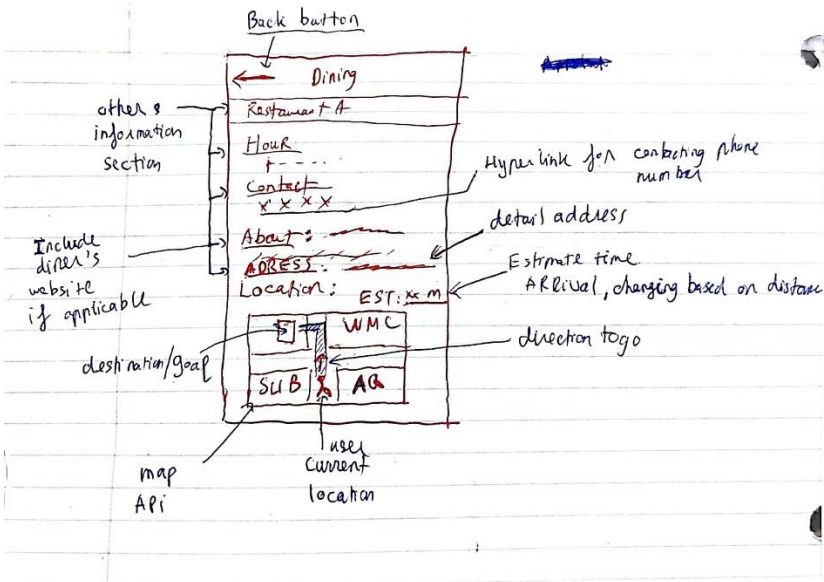 Back button
Dining
Restaurant A
other's
information
section
Hour
Contact
x x x x
Hyperlink for contacting phone
number
About:
detail address
Include
diner's
website
if applicable
ADRESS:
Location:
EST: xx m
Estimate time
ARRival, changing based on distance
WMC
destination/goal
direction to go
SUB
AQ
user
current
location
map
APi